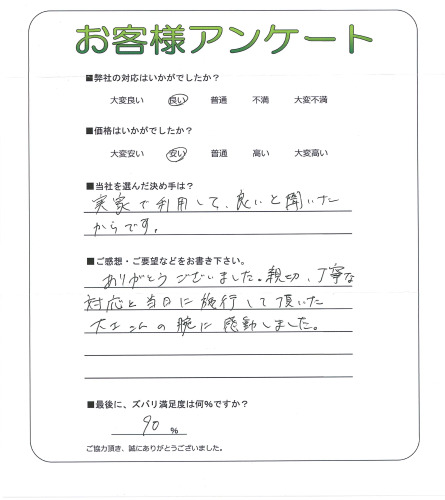 お客様アンケート
■弊社の対応はいかがでしたか?
大変良い 良い 普通 不満 大変不満
■価格はいかがでしたか?
大変安い 安い 普通 高い 大変高い
■当社を選んだ決め手は?
実家で利用して、良いと聞いた
からです。
■ご感想・ご要望などをお書き下さい。
ありがとうございました。親切、丁寧な
対応と当日に施行して頂いた
大工さんの腕に感動しました。
■最後に、ズバリ満足度は何%ですか?
90 %
ご協力頂き、誠にありがとうございました。